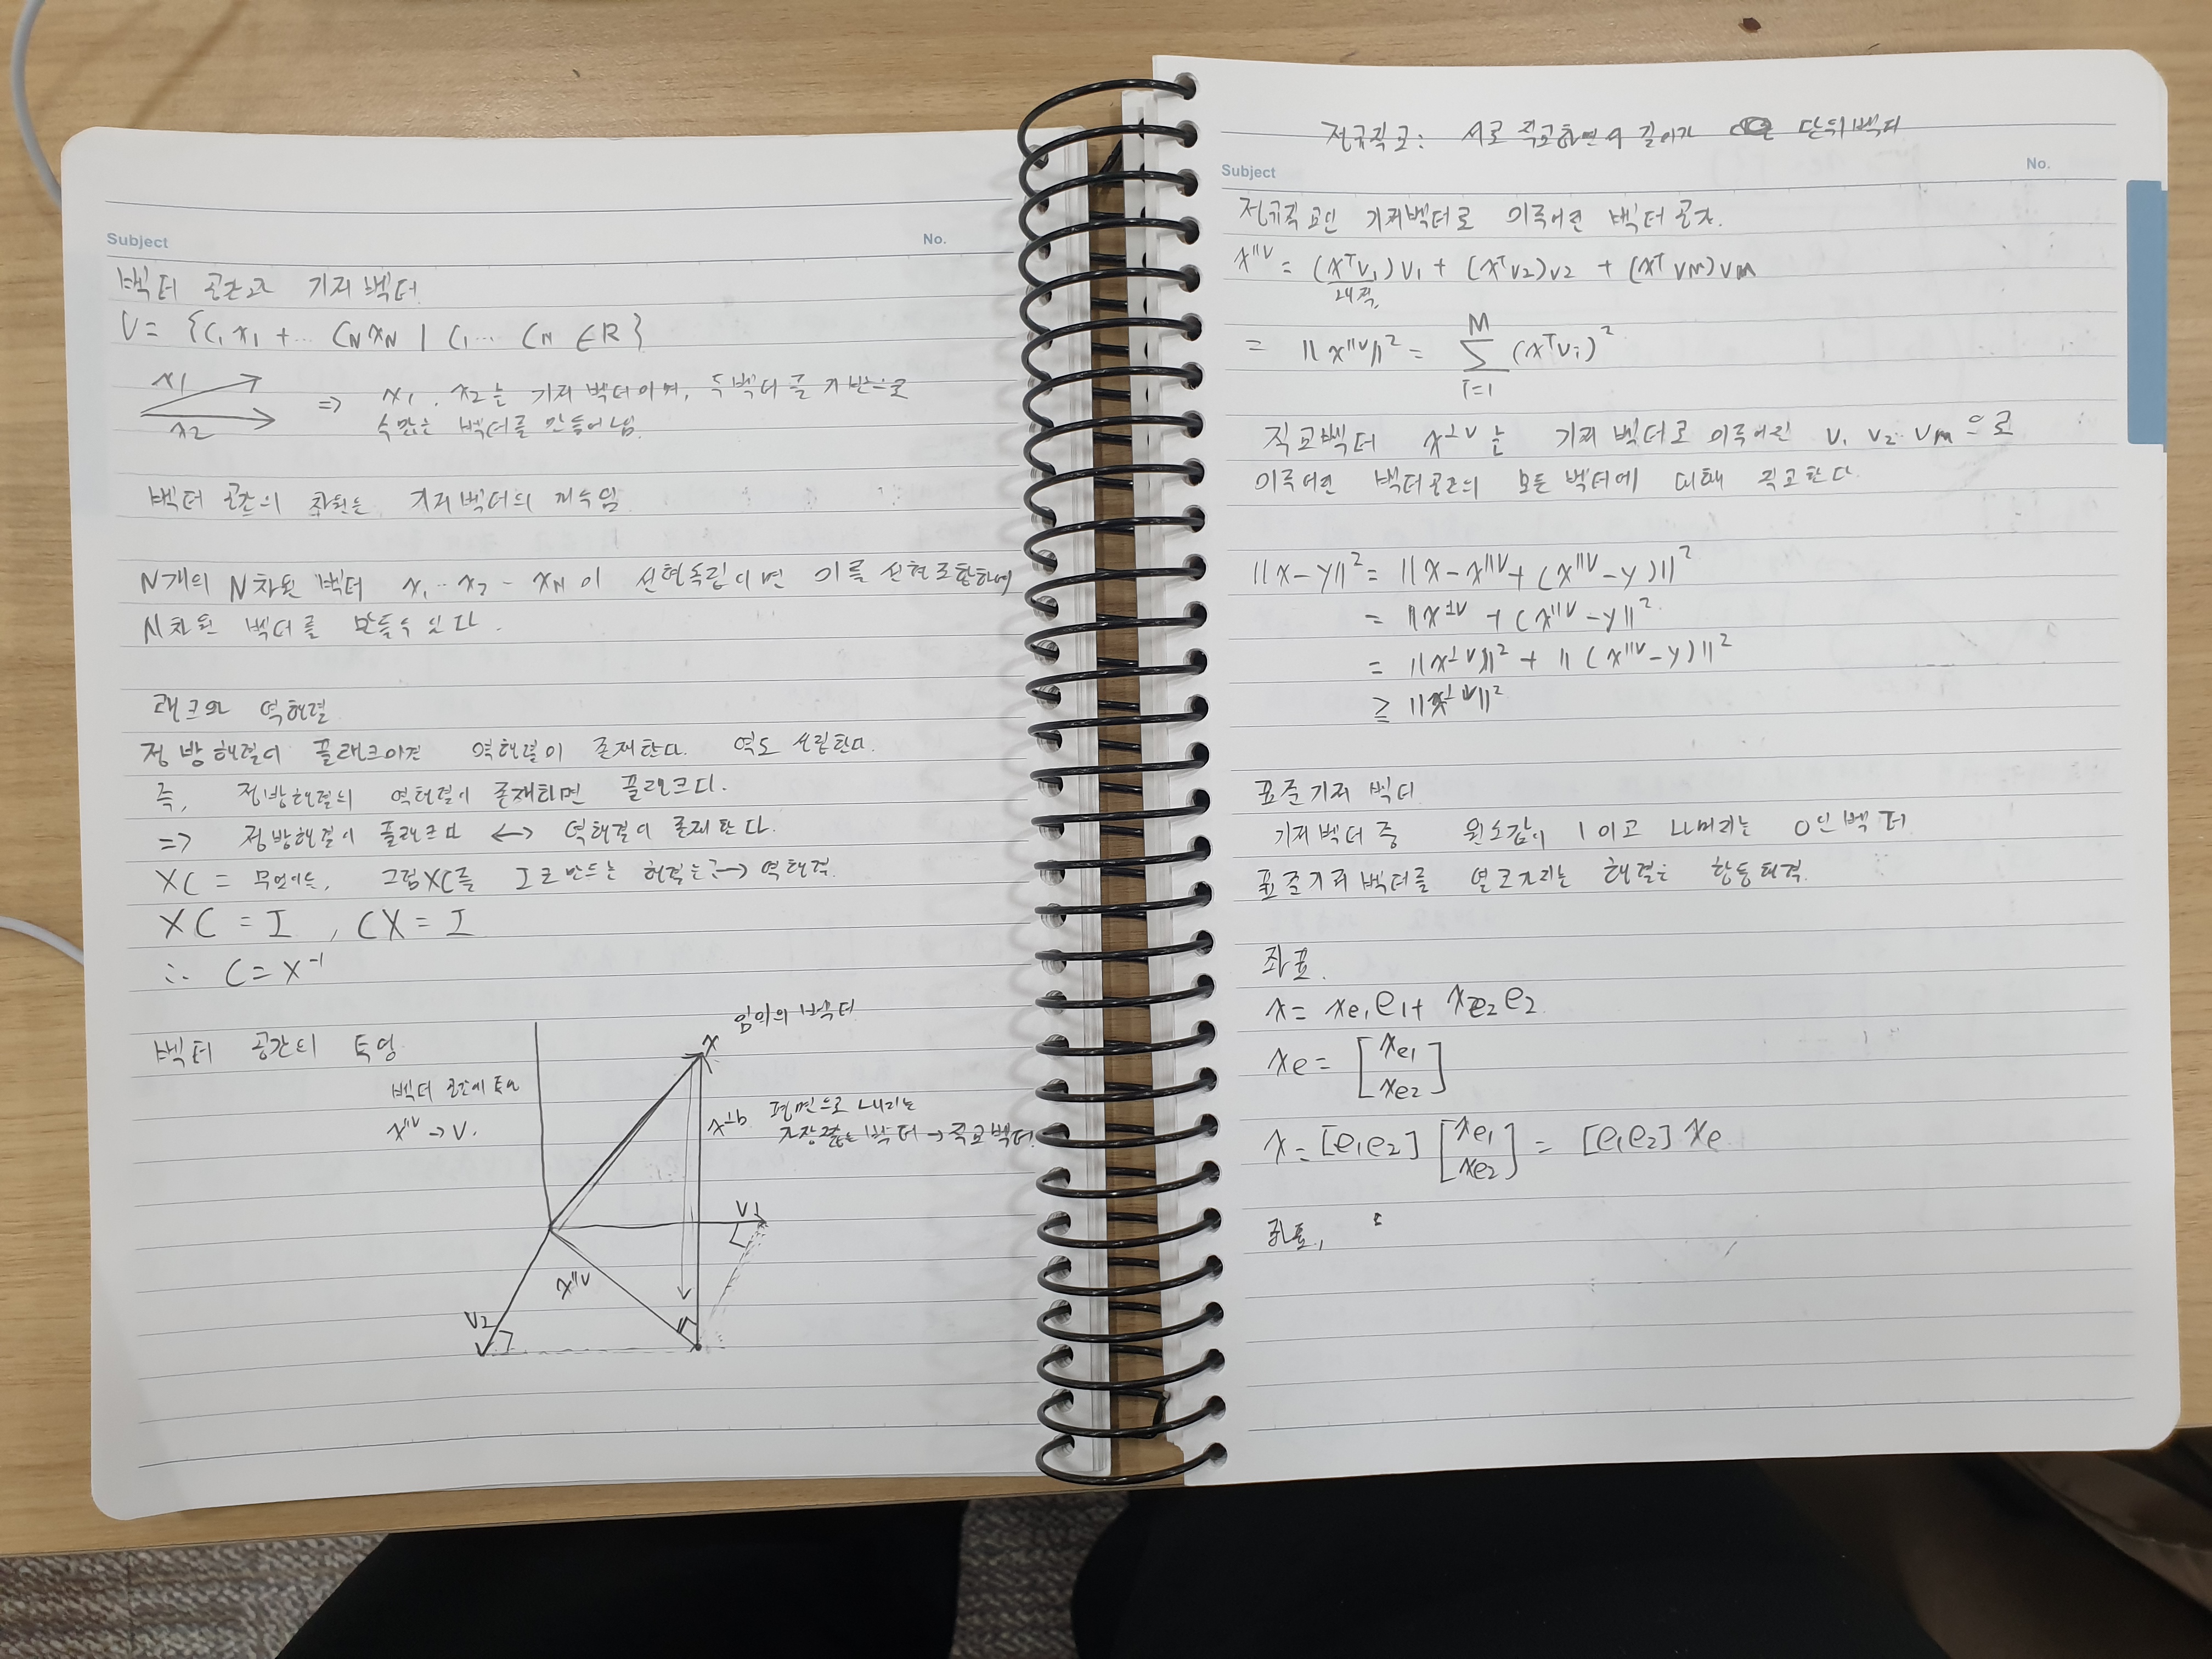 Subject No.
벡터 공간과 기저 벡터
V = {C₁x₁ + ... C_N x_N | C₁... C_N ∈ R}
x1
x2
⇒ x1, x2는 기저 벡터이며, 두 벡터를 기반으로
수많은 벡터를 만들어냄.
벡터 공간의 차원은 기저벡터의 개수임
N개의 N차원 벡터 x₁.. x₂ - x_N이 선형독립이면 이를 선형조합하여
N차원 벡터를 만들수 있다.
랭크와 역행렬
정방행렬이 풀랭크이면 역행렬이 존재한다. 역도 성립한다.
즉, 정방행렬의 역행렬이 존재하면 풀랭크다.
=> 정방행렬이 풀랭크다 <-> 역행렬이 존재한다.
XC = 무엇이든, 그럼 XC를 I로 만드는 행렬은? → 역행렬.
XC = I , CX = I
∴ C = X⁻¹
벡터 공간의 투영
벡터 공간에 투영
x^∥V → V.
임의의 벡터
x
x^⊥b 평면으로 내리는
가장 짧은 벡터 → 직교벡터.
V1
x^∥V
V2
정규직교: 서로 직교하면서 길이가 단위벡터
Subject No.
정규직교인 기저벡터로 이루어진 벡터 공간.
x^∥V = (x^T v₁)v₁ + (x^T v2)v2 + (x^T vM)vM
내적
= ||x^∥V||² = Σ_{i=1}^{M} (x^T vᵢ)²
직교벡터 x^⊥V는 기저 벡터로 이루어진 v₁ v₂.. v_M으로
이루어진 벡터공간의 모든 벡터에 대해 직교한다.
||x-y||² = ||x-x^∥V + (x^∥V-y)||²
= ||x^⊥V + (x^∥V-y||²
= ||x^⊥V||² + ||(x^∥V-y)||²
≥ ||x^⊥V||²
표준기저 벡터
기저벡터 중 원소값이 1이고 나머지는 0인 벡터
표준기저 벡터를 열로가지는 행렬은 항등행렬.
좌표.
x = xe₁e₁ + xe₂e₂
xe = [xe1 xe2]
x = [e₁e₂] [xe1 xe2] = [e₁e₂] xe
좌표,